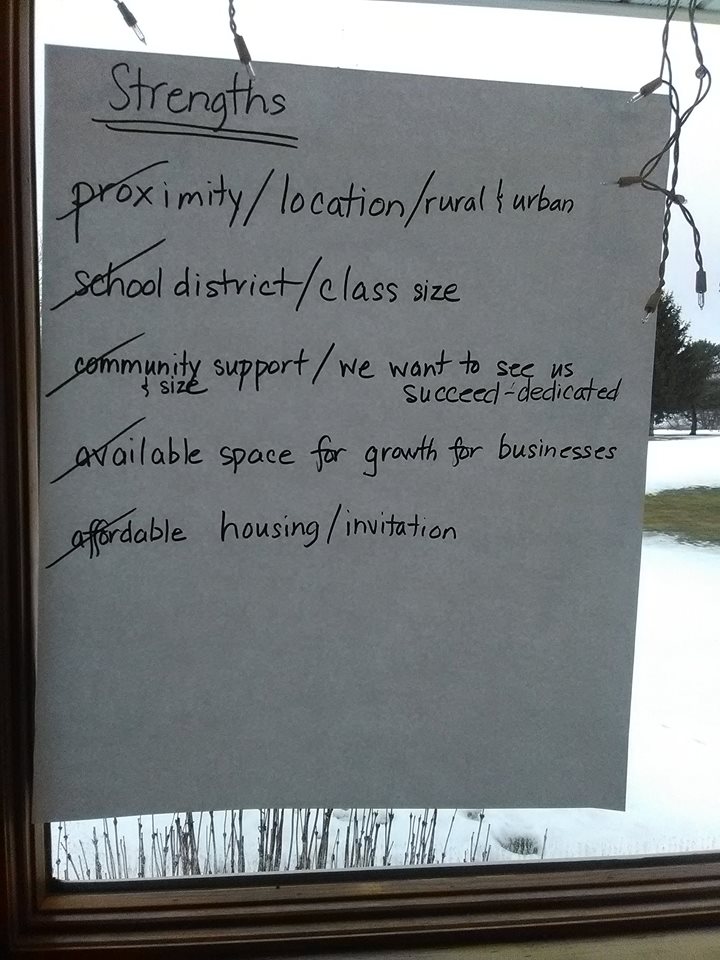 Strengths
proximity/location/rural & urban
school district/class size
community support/we want to see us
& size succeed-dedicated
available space for growth for businesses
affordable housing/invitation